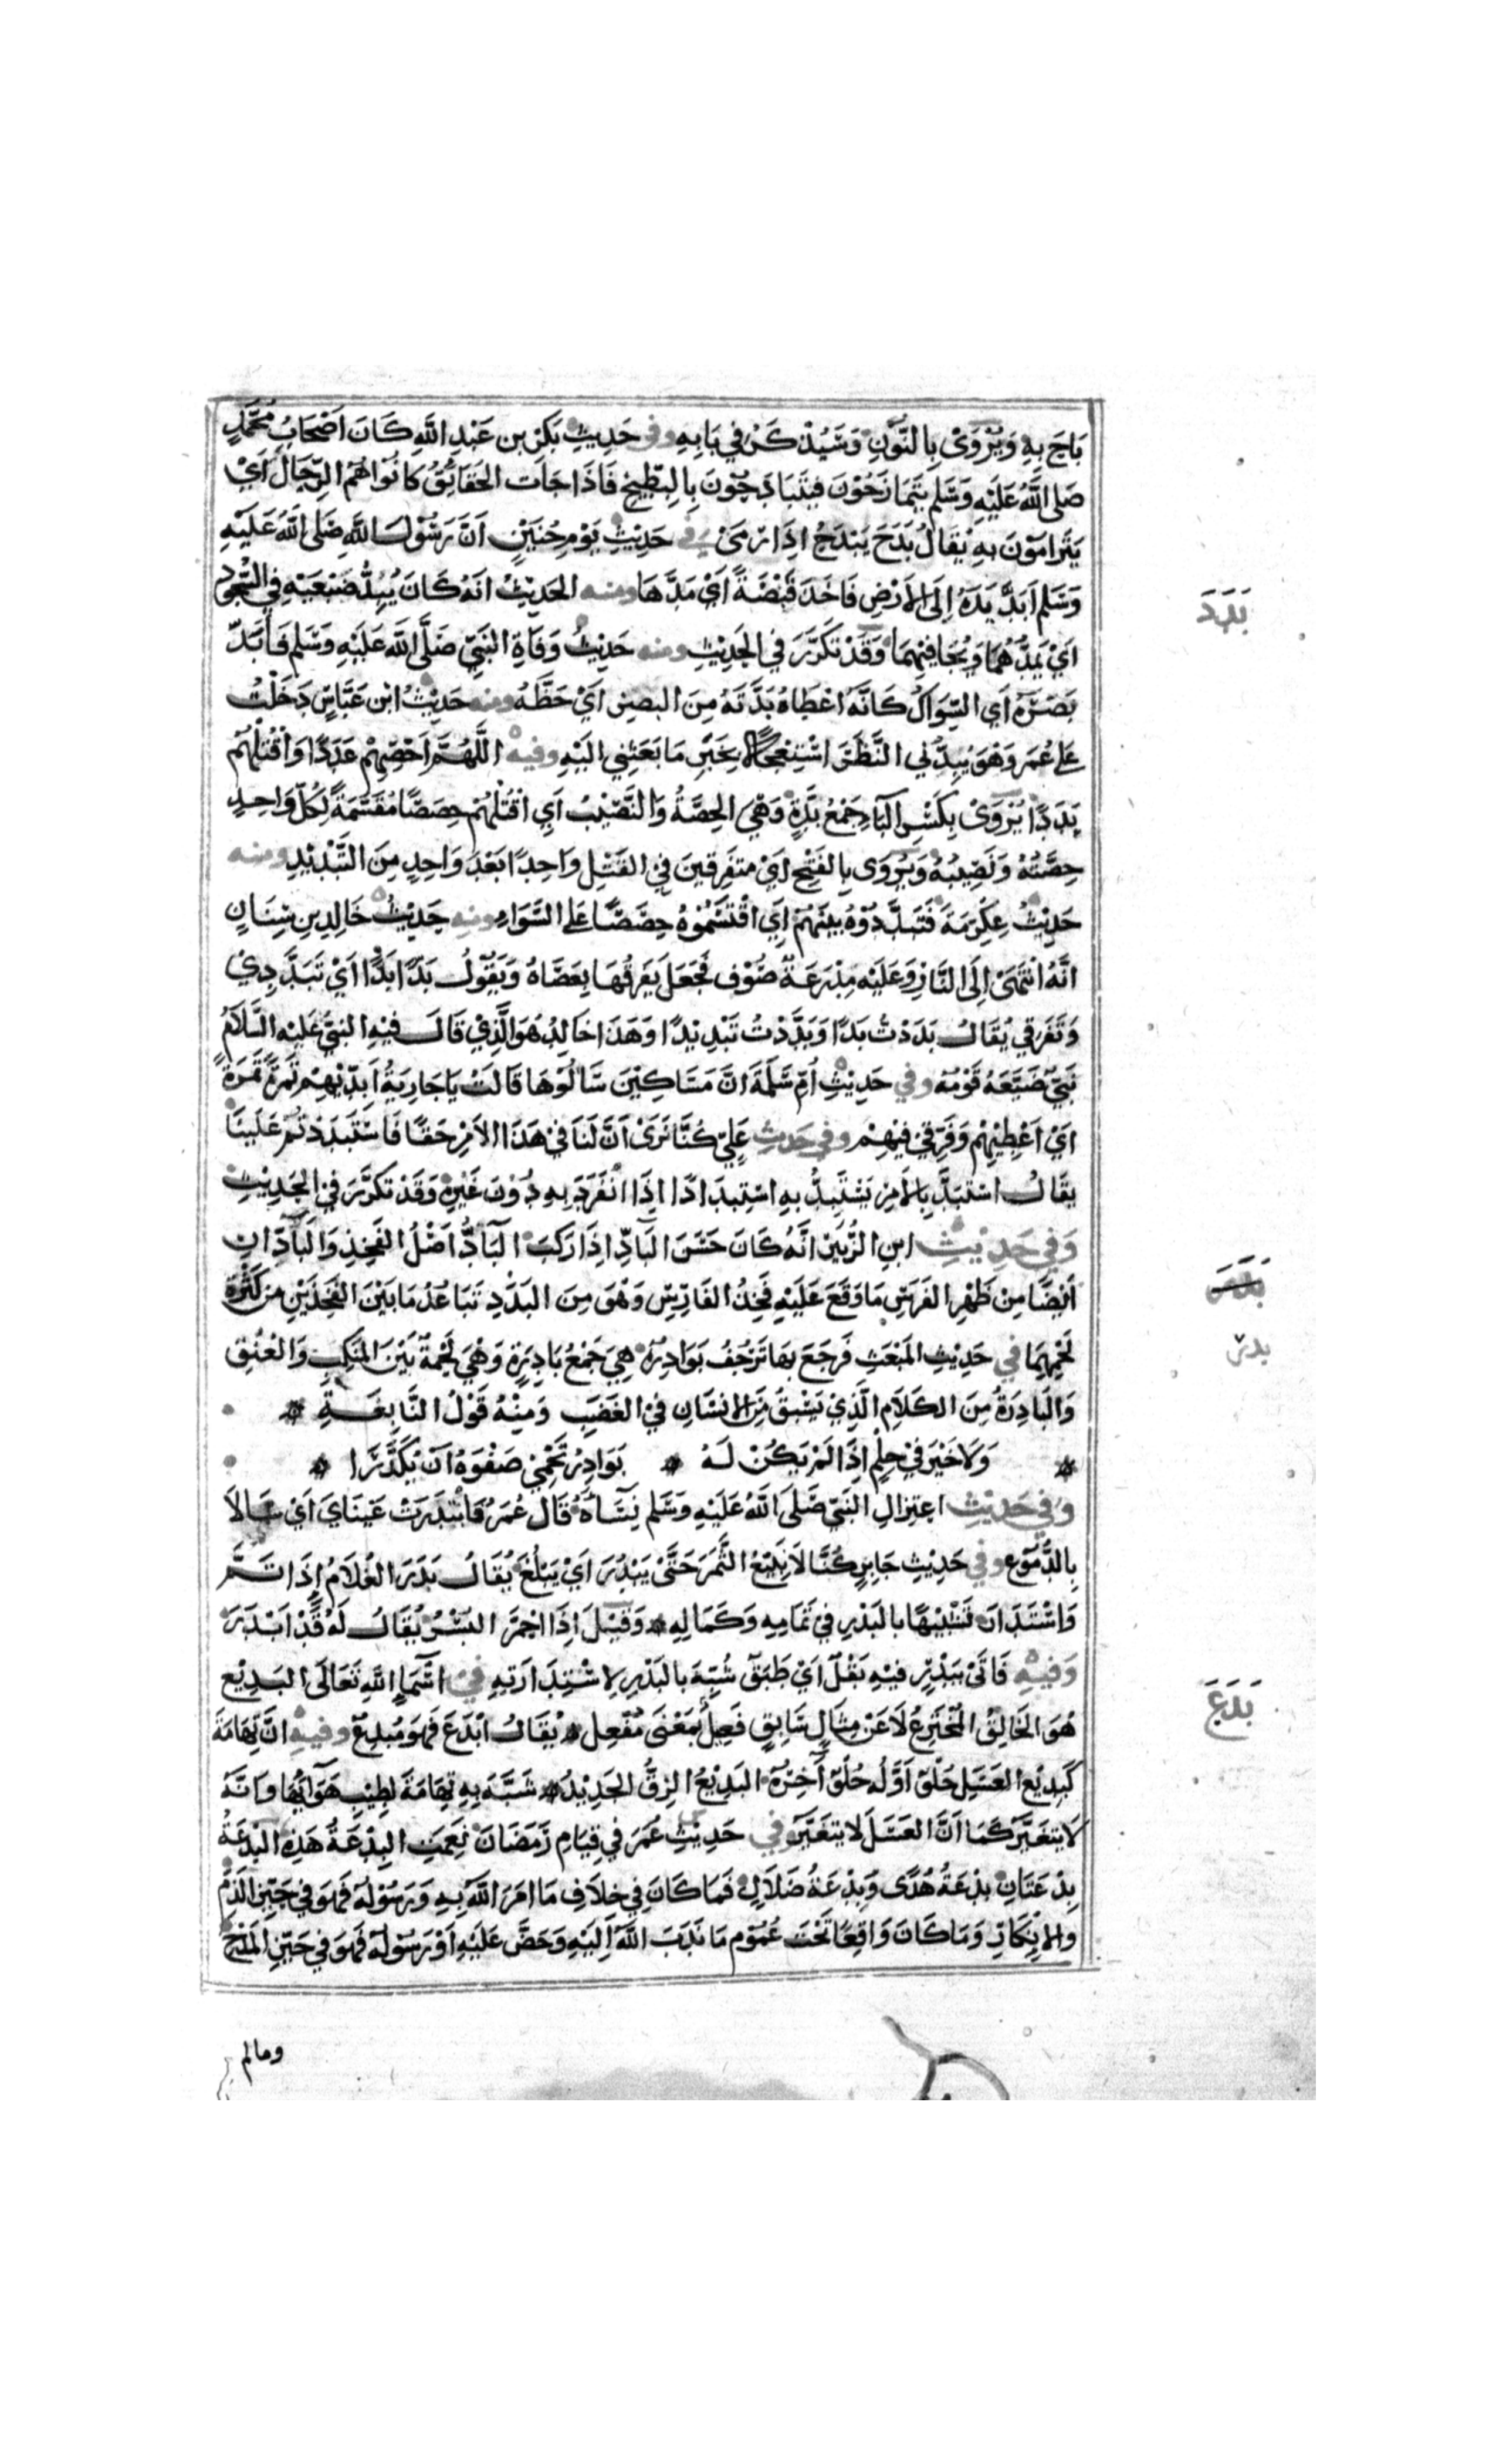 بَاحَ بِهِ وَيُرْوَىٰ بِالنُّونِ وَسَيُذْكَرُ فِي بَابِهِ وفي حَدِيثِ بَكْرِ بن عَبْدِ اللَّهِ كَانَ اَصْحَابُ مُحَمَّدٍ
صَلى اللَّهُ عَلَيْهِ وَسَلم يَتَمَازَحُوْنَ فيَتَبَادَحُوْنَ بِالبِطِّيخِ فَاذَا جَات الحَقَائِقُ كَانُوا هُمُ الرِّجَالَ اَيْ
يَتَرامَوْنَ بِهِ يُقَالُ بَدَحَ يَبْدَحُ اِذَا رَمَىٰ في حَدِيْثِ يَوْمِ حُنَيْنٍ اَنَّ رَسُوْلَ اللَّهِ صَلى اللَّهُ عَلَيْهِ
بَدَدَ
وَسَلم اَبَدَّ يَدَهُ اِلَى الاَرْضِ فَاخَذَ قَبْضَةً اَيْ مَدَّهَا ومنه الحَدِيْثُ اَنهُ كَانَ يُبِدُّ ضَبْعَيْهِ فِي السُّجُودِ
اَيْ يَمُدُّهُمَا وَيُجَافِيْهِمَا وَقَدْ تَكَرَّرَ فِي الحَدِيْثِ ومنه حَدِيْثُ وَفَاةِ النَّبِيِّ صَلَّى اللَّهُ عَلَيْهِ وَسَلم فَاَبَدَّ
بَصَرَهُ اَيِ السِّوَاكَ كَاَنَّهُ اَعْطَاهُ بَدَّتَهُ مِنَ البصرِ اَيْ حَظَّهُ ومنه حَدِيْثُ ابْنِ عَبَّاسٍ دَخَلْتُ
عَلى عُمَرَ وَهْوَ يُبِدُّنِي النَّظَرَ اسْتِعْجَالًا بِخَبَرِ مَا بَعَثَنِي اِلَيْهِ وفيه اللَّهُمَّ اَحْصِهِمْ عَدَدًا وَاقْتُلْهُمْ
بِدَدًا يُرْوَىٰ بِكَسْرِ البَاءِ جَمْعُ بُدَّةٍ وَهْيَ الحِصَّةُ وَالنَّصِيْبُ اَيِ اقْتُلْهُمْ حِصَصًا مُقَسَّمَةً لِكُلِّ وَاحِدٍ
حِصَّتُهُ وَنَصِيْبُهُ وَيُرْوَى بِالفَتْحِ اَيْ مُتَفَرِقينَ فِي القَتْلِ وَاحِدًا بَعْدَ وَاحِدٍ مِنَ التَّبْدِيْدِ ومنه
حَدِيْثُ عِكْرِمَةَ فَتَبَدَّدُوْهُ بينَهُمْ اَيِ اقْتَسَمُوْهُ حِصَصًا عَلى السَّوَاءِ ومنه حَدِيْثُ خَالِدِ بن سِنَانٍ
انَّهُ انْتَهَىٰ اِلَى النَّارِ وَعَلَيْهِ مِدْرَعَةُ صُوْفٍ فَجَعَلَ يَفْرِقُهَا بِعَصَاهُ وَيَقُوْلُ بَدًّا بَدًّا اَيْ تَبَدَّدِيْ
وَتَفَرَقِي يُقَالُ بَدَدْتُ بَدًّا وَبَدَّدْتُ تَبْدِيْدًا وَهَذَا خَالِدٌ هُوَ الَّذِيْ قَالَ فِيْهِ النَّبِيُّ عَلَيْهِ السَّلَامُ
نَبِيٌّ ضَيَّعَهُ قَوْمُهُ وفي حَدِيْثِ اُمِّ سَلَمَةَ انَّ مَسَاكِيْنَ سَاَلُوْهَا فَقَالَتْ يَا جَارِيَةُ اَبِدِّيْهِمْ تَمْرَةً تَمْرَةً
اَيْ اَعْطِيْهِمْ وَفَرِّقِيْ فِيْهِمْ وفي حَدِيثِ عَلِيٍّ كُنَّا نَرَىٰ اَنَّ لَنَا فِيْ هَذَا الاَمْرِ حَقًا فَاسْتَبْدَدْتُمْ عَلَيْنَا
يقَالُ اسْتَبَدَّ بِالاَمْرِ يَسْتَبِدُّ بِهِ اسْتِبدَادًا اِذَا انْفَرَدَ بِهِ دُوْنَ غَيْرِهِ وَقَدْ تَكَرَّرَ فِي الحَدِيْثِ
وَفِي حَدِيْثِ ابنِ الزُّبَيْرِ انَّهُ كَانَ حَسَنَ البَادِّ اِذَا رَكِبَ البَادُّ اَصْلُ الفَخِذِ وَالبَادَّانِ
اَيْضًا مِنْ ظَهْرِ الفَرَسِ مَا وَقَعَ عَلَيْهِ فَخِذُ الفَارِسِ وَهْوَ مِنَ البَدَدِ تَبَاعُدُ مَا بَيْنَ الفَخِذَيْنِ مِن كَثْرَةِ
بدر
لَحْمِهِمَا في حَدِيْثِ المَبْعَثِ فَرَجَعَ بهَا تَرْجُفُ بَوَادِرُهُ هِيَ جَمْعُ بَادِرَةٍ وَهْيَ لَحْمَةٌ بَيْنَ المَنْكِبِ وَالعُنُقِ
وَالبَادِرَةُ مِنَ الكَلَامِ الَّذِيْ يَسْبِقُ مِنَ الانسَانِ فِيْ الغَضَبِ وَمِنْهُ قَوْلُ النَّابِغَةِ
وَلَا خَيْرَ فِيْ حِلْمٍ اِذَا لَمْ يَكُنْ لَهُ * بَوَادِرُ تَحْمِيْ صَفْوَهُ اَنْ يُكَدَّرَا
وَفي حَدِيْثِ اعتِزَالِ النَّبِيِّ صَلَى اللَّهُ عَلَيْهِ وَسَلم نِسَاءَهُ قَالَ عُمَرُ فَابْتَدَرَتْ عَيْنَايَ اَيْ سَالَا
بِالدُّمُوْعِ وفي حَدِيْثِ جَابِرٍ كُنَّا لَا نَبِيْعُ الثَّمَرَ حَتَّىٰ يَبْدُرَ اَيْ يَبْلُغَ يُقَالُ بَدَرَ الغُلَامُ اِذَا تَمَّ
وَاسْتَدَارَ تَشْبِيْهًا بِالبَدْرِ فِيْ تَمَامِهِ وَكَمَالِهِ * وَقِيْلَ اِذَا احْمَرَّ البُسْرُ يُقَالُ لَهُ قَدْ اَبْدَرَ
وَفِيْهِ فَاُتِيَ بِبَدْرٍ فِيْهِ بَقْلٌ اَيْ طَبَقٍ شُبِّهَ بالبَدْرِ لِاسْتِدَارَتِهِ فيْ اَسْمَاءِ اللَّهِ تَعَالَى البَدِيْعُ
بَدَعَ
هُوَ الخَالِقُ المُخْتَرِعُ لَا عَنْ مِثَالٍ سَابِقٍ فَعِيْلٌ بمَعْنَى مُفْعِلٍ * يُقَالُ اَبْدَعَ فَهْوَ مُبْدِعٌ وفيه انَّ تِهَامَةَ
كَبَدِيْعِ العَسَلِ حُلْوٌ اَوَّلُهُ حُلْوٌ آخِرُهُ البَدِيْعُ الزِقُّ الجَدِيْدُ * شَبَّهَ بِهِ تِهَامَةَ لِطِيْبِ هَوَائِهَا وَاَنَّهُ
لَا يَتَغَيَّرُ كَمَا اَنَّ العَسَلَ لَا يَتَغَيَّرُ وفي حَدِيْثِ عُمَرَ فِي قِيَامِ رَمَضَانَ نِعْمَتِ البِدْعَةُ هَذِهِ البِدْعَةُ
بِدْعَتَانِ بِدْعَةُ هُدًى وَبِدْعَةُ ضَلَالٍ فَمَا كَانَ فِي خِلَافِ مَا اَمَرَ اللَّهُ بِهِ وَرَسُوْلُهُ فَهْوَ فِي حَيِّزِ الذَّمِّ
وَالاِنْكَارِ وَمَا كَانَ وَاقِعًا تَحْتَ عُمُوْمِ مَا نَدَبَ اللَّهُ اِلَيْهِ وَحَضَّ عَلَيْهِ اَوْ رَسُوْلُهُ فَهْوَ فِي حَيِّزِ المَدْحِ
ومالم